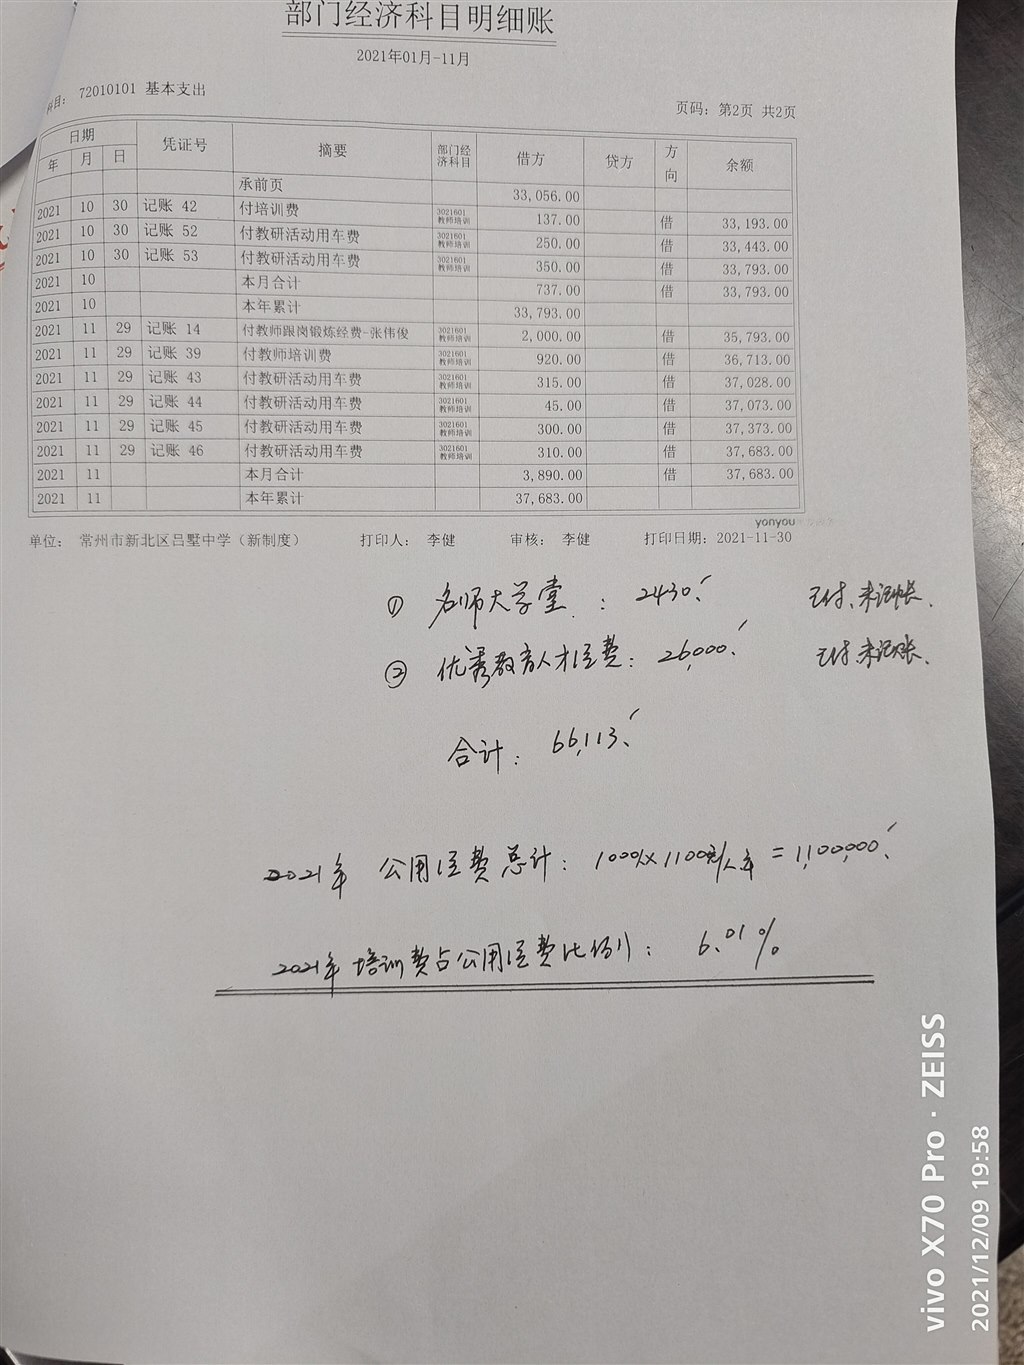 部门经济科目明细账
2021年01月-11月
科目: 72010101 基本支出
页码: 第2页 共2页
日期 凭证号 摘要 部门经济科目 借方 贷方 方向 余额
年 月 日
承前页 33,056.00
2021 10 30 记账 42 付培训费 3021601 教师培训 137.00 借 33,193.00
2021 10 30 记账 52 付教研活动用车费 3021601 教师培训 250.00 借 33,443.00
2021 10 30 记账 53 付教研活动用车费 3021601 教师培训 350.00 借 33,793.00
2021 10 本月合计 737.00 借 33,793.00
2021 10 本年累计 33,793.00
2021 11 29 记账 14 付教师跟岗锻炼经费-张伟俊 3021601 教师培训 2,000.00 借 35,793.00
2021 11 29 记账 39 付教师培训费 3021601 教师培训 920.00 借 36,713.00
2021 11 29 记账 43 付教研活动用车费 3021601 教师培训 315.00 借 37,028.00
2021 11 29 记账 44 付教研活动用车费 3021601 教师培训 45.00 借 37,073.00
2021 11 29 记账 45 付教研活动用车费 3021601 教师培训 300.00 借 37,373.00
2021 11 29 记账 46 付教研活动用车费 3021601 教师培训 310.00 借 37,683.00
2021 11 本月合计 3,890.00 借 37,683.00
2021 11 本年累计 37,683.00
yonyou
单位: 常州市新北区吕墅中学（新制度） 打印人: 李健 审核: 李健 打印日期: 2021-11-30
① 名师大学堂: 2430. 已付、未记帐.
② 优秀教育人才经费: 26,000. 已付、未记账.
合计: 66,113.
2021年 公用经费总计: 1000人×1100元/人.年 = 1,100,000.
2021年培训费占公用经费比例: 6.01%
vivo X70 Pro · ZEISS
2021/12/09 19:58